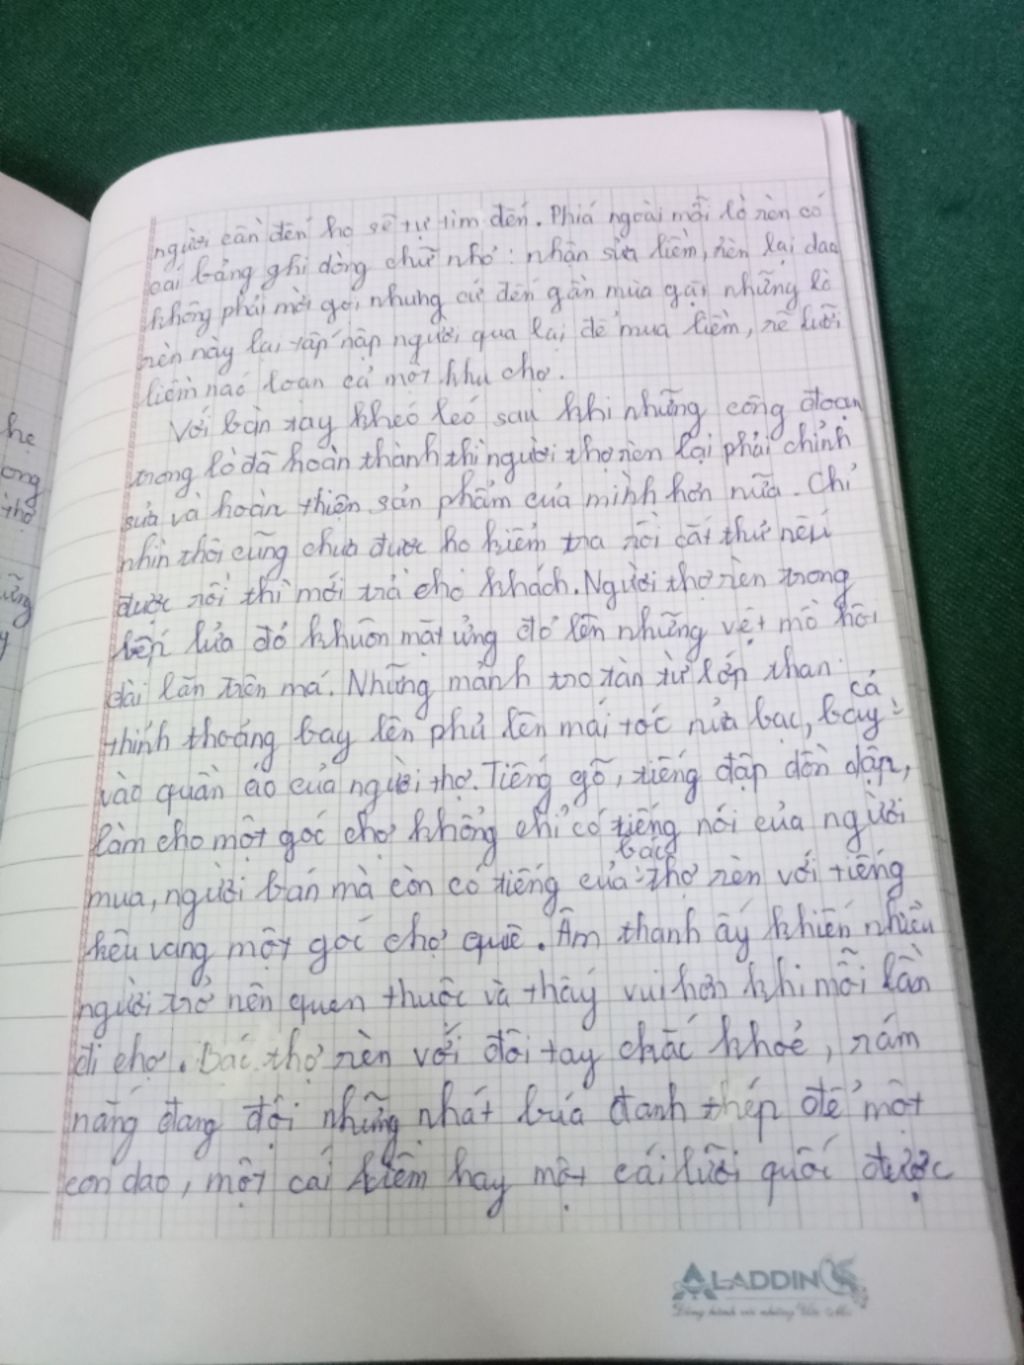 người cần đến họ sẽ tự tìm đến. Phiá ngoài mỗi lò rèn có
cái bảng ghi dòng chữ nhỏ: nhận sửa liềm, rèn lại dao
không phải mời gọi nhưng cứ đến gần mùa gặt những lò
rèn này lại tấp nập người qua lại để mua liềm, rẽ lưỡi
liềm naó loạn cả một khu chợ.
Với bàn tay kheó leó sau khi những công đoạn
trong lò đã hoàn thành thì người thợ rèn lại phải chỉnh
sửa và hoàn thiện sản phẩm của mình hơn nữa. Chỉ
nhìn thôi cũng chưa được họ kiểm tra rồi cắt thử nếu
được rồi thì mới trả cho khách. Người thợ rèn trong
bếp lửa đỏ khuôn mặt ửng đỏ lên những vệt mồ hôi
dài lăn trên má. Những mảnh tro tàn từ lớp than
thỉnh thoảng bay lên phủ lên mái tóc nửa bạc, bay cả
vào quần áo của người thợ. Tiếng gõ, tiếng đập dồn dập,
làm cho một góc chợ không chỉ có tiếng nói của người
mua, người bán mà còn có tiếng của bác thợ rèn với tiếng
kêu vang một góc chợ quê. Âm thanh ấy khiến nhiều
người trở nên quen thuộc và thấy vui hơn khi mỗi lần
đi chợ. Bác thợ rèn với đôi tay chắc khoẻ, rám
nắng đang đội những nhát búa đanh thép để một
con dao, một cái liềm hay một cái lưỡi quốc được
he
ong
thợ
ững
y
ALADDIN